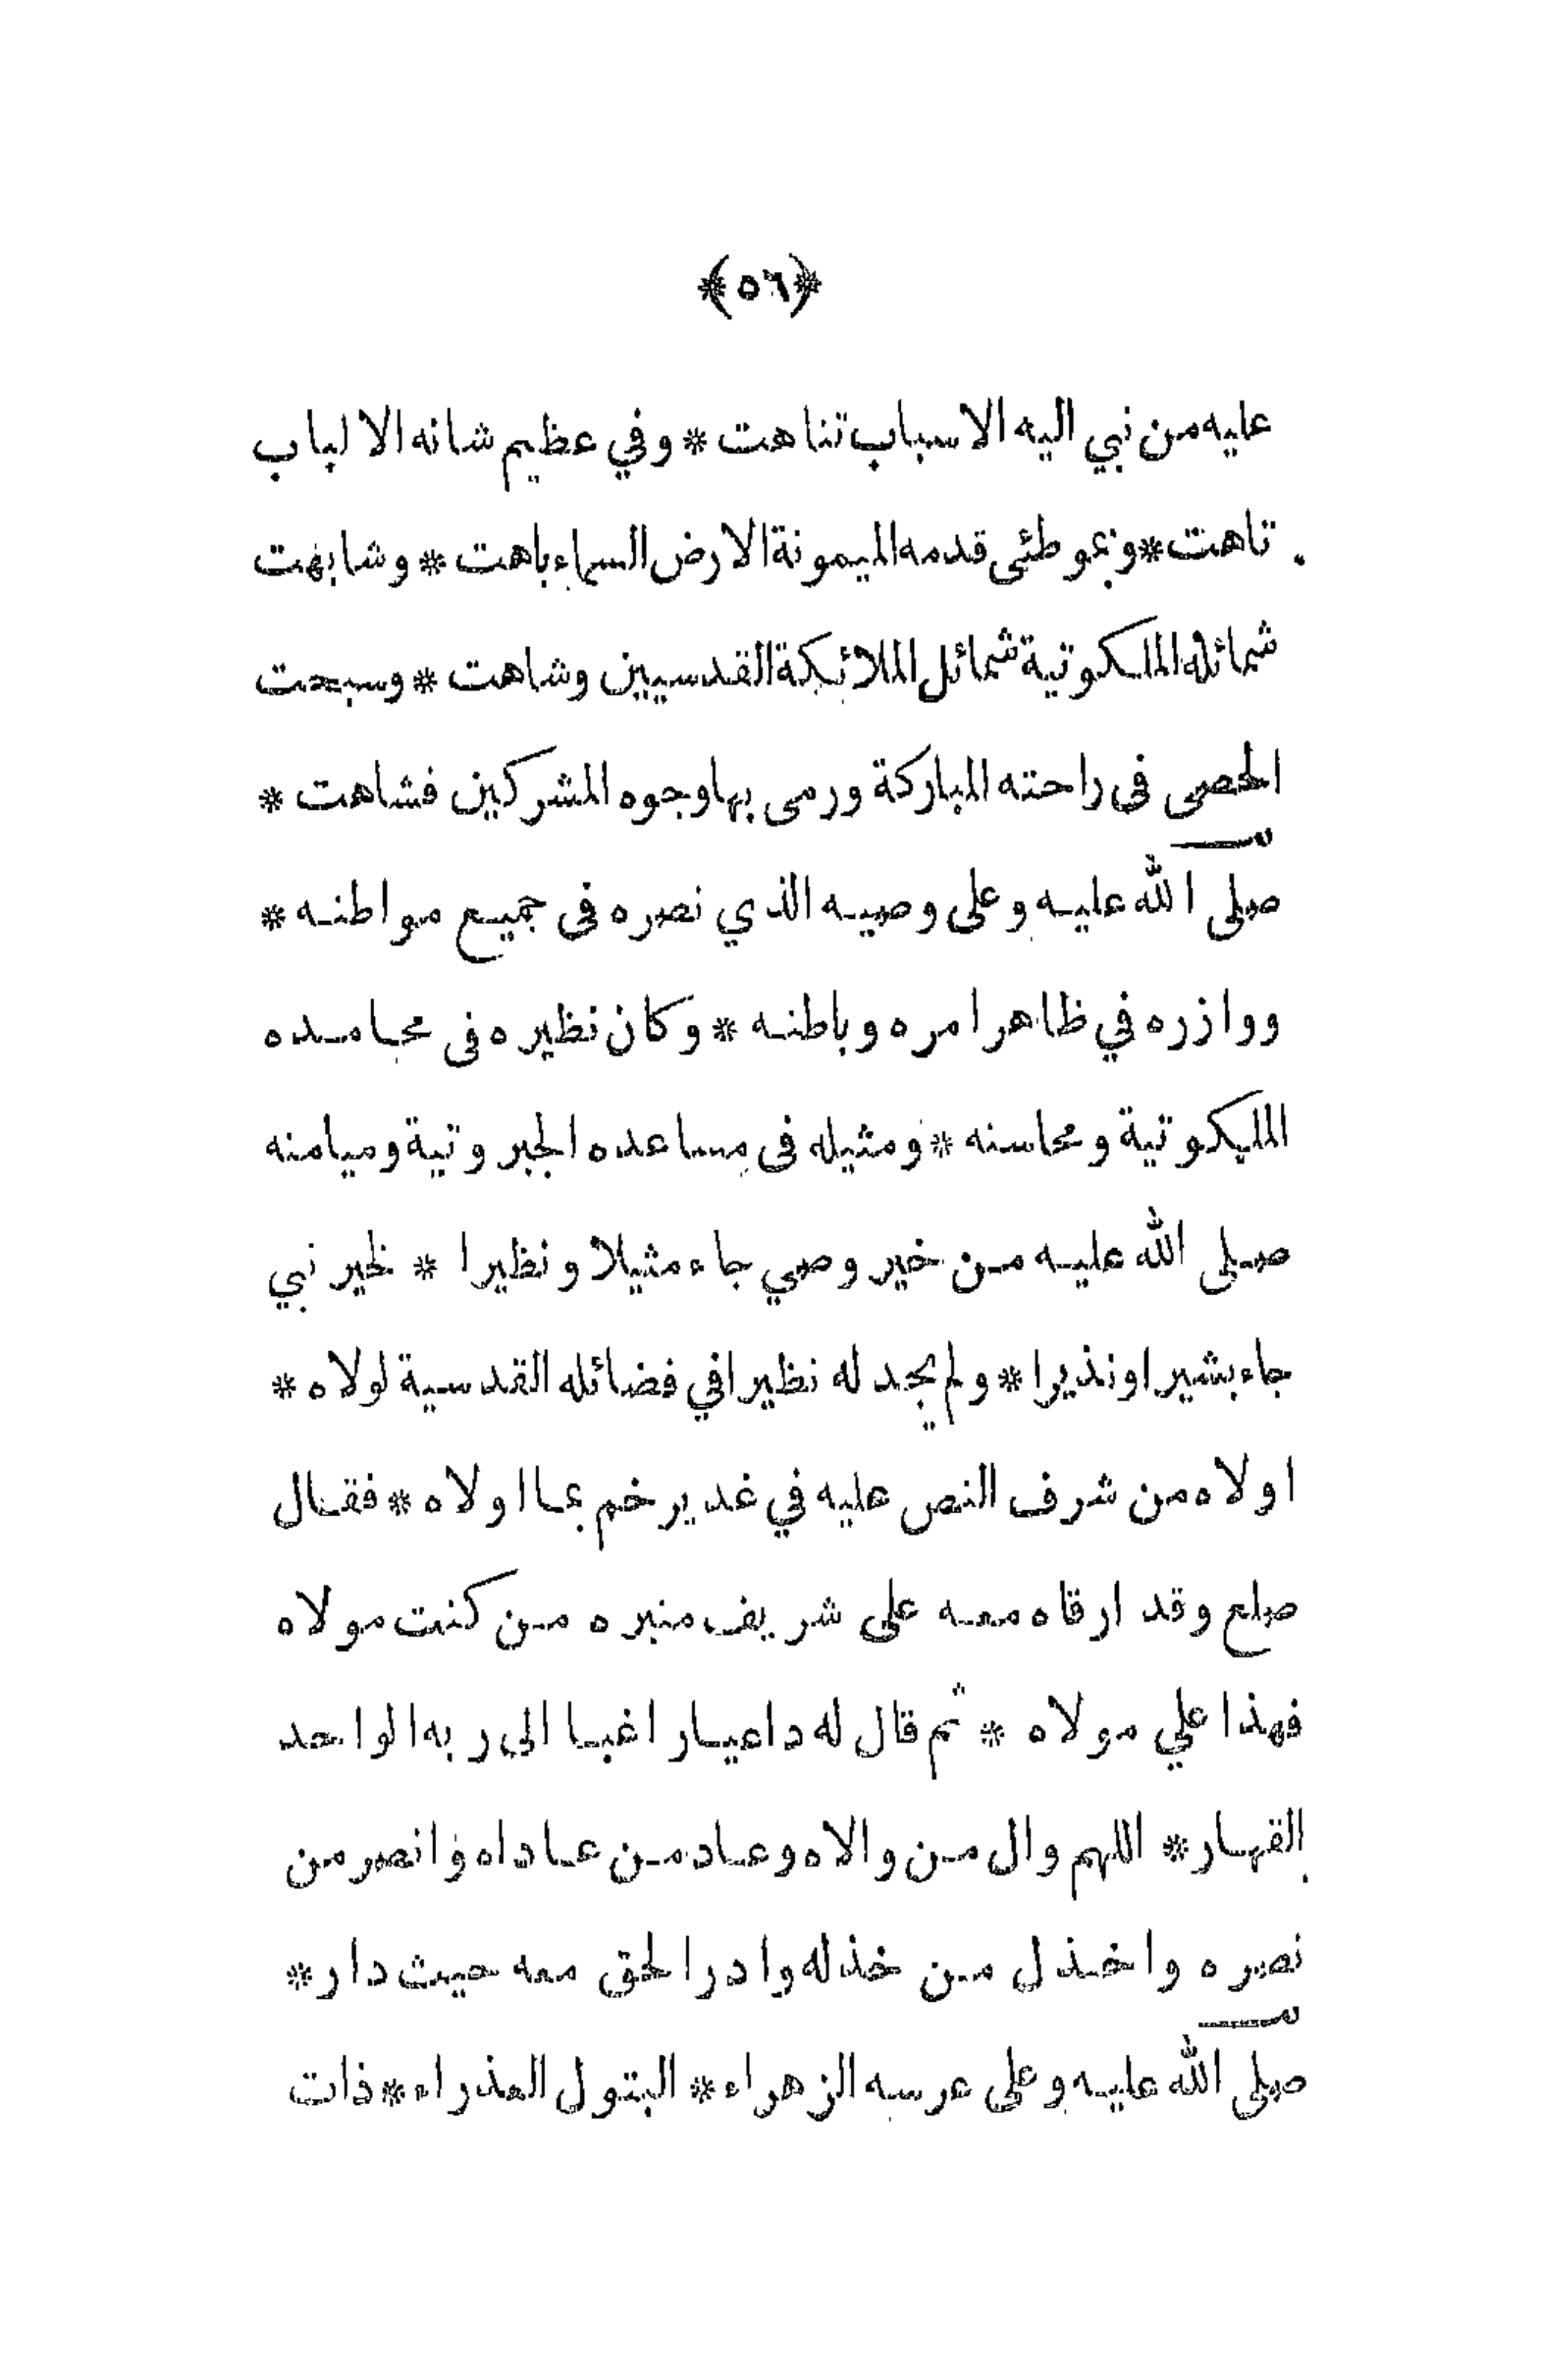 ﴿٥٦﴾
عليه من نبي اليه الاسباب تناهت * وفي عظيم شانه الالباب
تاهت * وبموطئى قدمه الميمونة الارض السماء باهت * وشابهت
شمائله الملكوتية شمائل الملائكة القدسيين وشاهت * وسبحت
الحصى فى راحته المباركة ورمى بها وجوه المشركين فشاهت *
صلى الله عليه وعلى وصيه الذي نصره فى جميع مواطنه *
ووازره في ظاهر امره وباطنه * وكان نظيره فى محامده
الملكوتية ومحاسنه * ومثيله فى مساعده الجبروتية وميامنه
صلى الله عليه من خير وصي جاء مثيلا ونظيرا * لخير نبي
جاء بشيرا ونذيرا * ولم يجد له نظيرا في فضائله القدسية لولاه *
اولاه من شرف النص عليه في غدير خم بما اولاه * فقال
صلع وقد ارقاه معه على شريف منبره من كنت مولاه
فهذا علي مولاه * ثم قال له داعيا راغبا الى ربه الواحد
القهار * اللهم وال من والاه وعاد من عاداه وانصر من
نصره واخذل من خذله وادر الحق معه حيث دار *
صلى الله عليه وعلى عرسه الزهراء * البتول العذراء * ذات